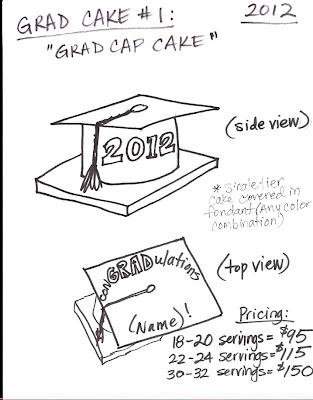 GRAD CAKE #1:
2012
"GRAD CAP CAKE"
2012
(side view)
* Single tier
cake covered in
fondant (Any color
combination)
conGRADulations
(Name)!
(top view)
Pricing:
18-20 servings= $95
22-24 servings= $115
30-32 servings= $150